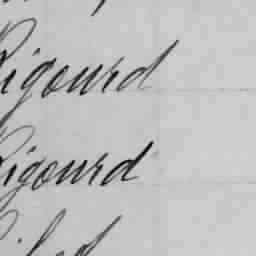 Rigourd
Rigourd